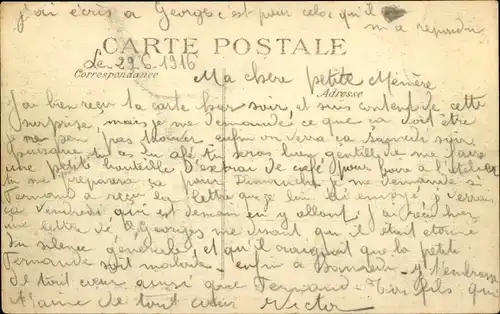 j'ai écris a Georges c'est pour celas qu'il
m a repondu
CARTE POSTALE
Le 29.6.1916
Correspondance
Adresse
Ma chere petite Mémère
J'ai bien reçu ta carte hier soir et suis content de cette
surprise mais je me demande ce que ça doit être
je ne peu pas trouver enfin on verra ça samedi soir
puisque tu as du café tu seras bien gentille de me faire
une petite bouteille d'extrai de café pour boire à l'atelier
tu me preparera ça pour Dimanche je me demande si
Fernand a reçu la lettre que je lui ai envoyé j verrai
ça vendredi qui est demain en y allant j'ai reçu hier
une lettre de Georges me disant qui il était etonné
du silence generale et qu'il craignait que la petite
Fernande soit malade enfin a Samedi j t'embrasse
de tout cœur ainsi que Fernand Ton fils qui
t'aime de tout cœur Victor